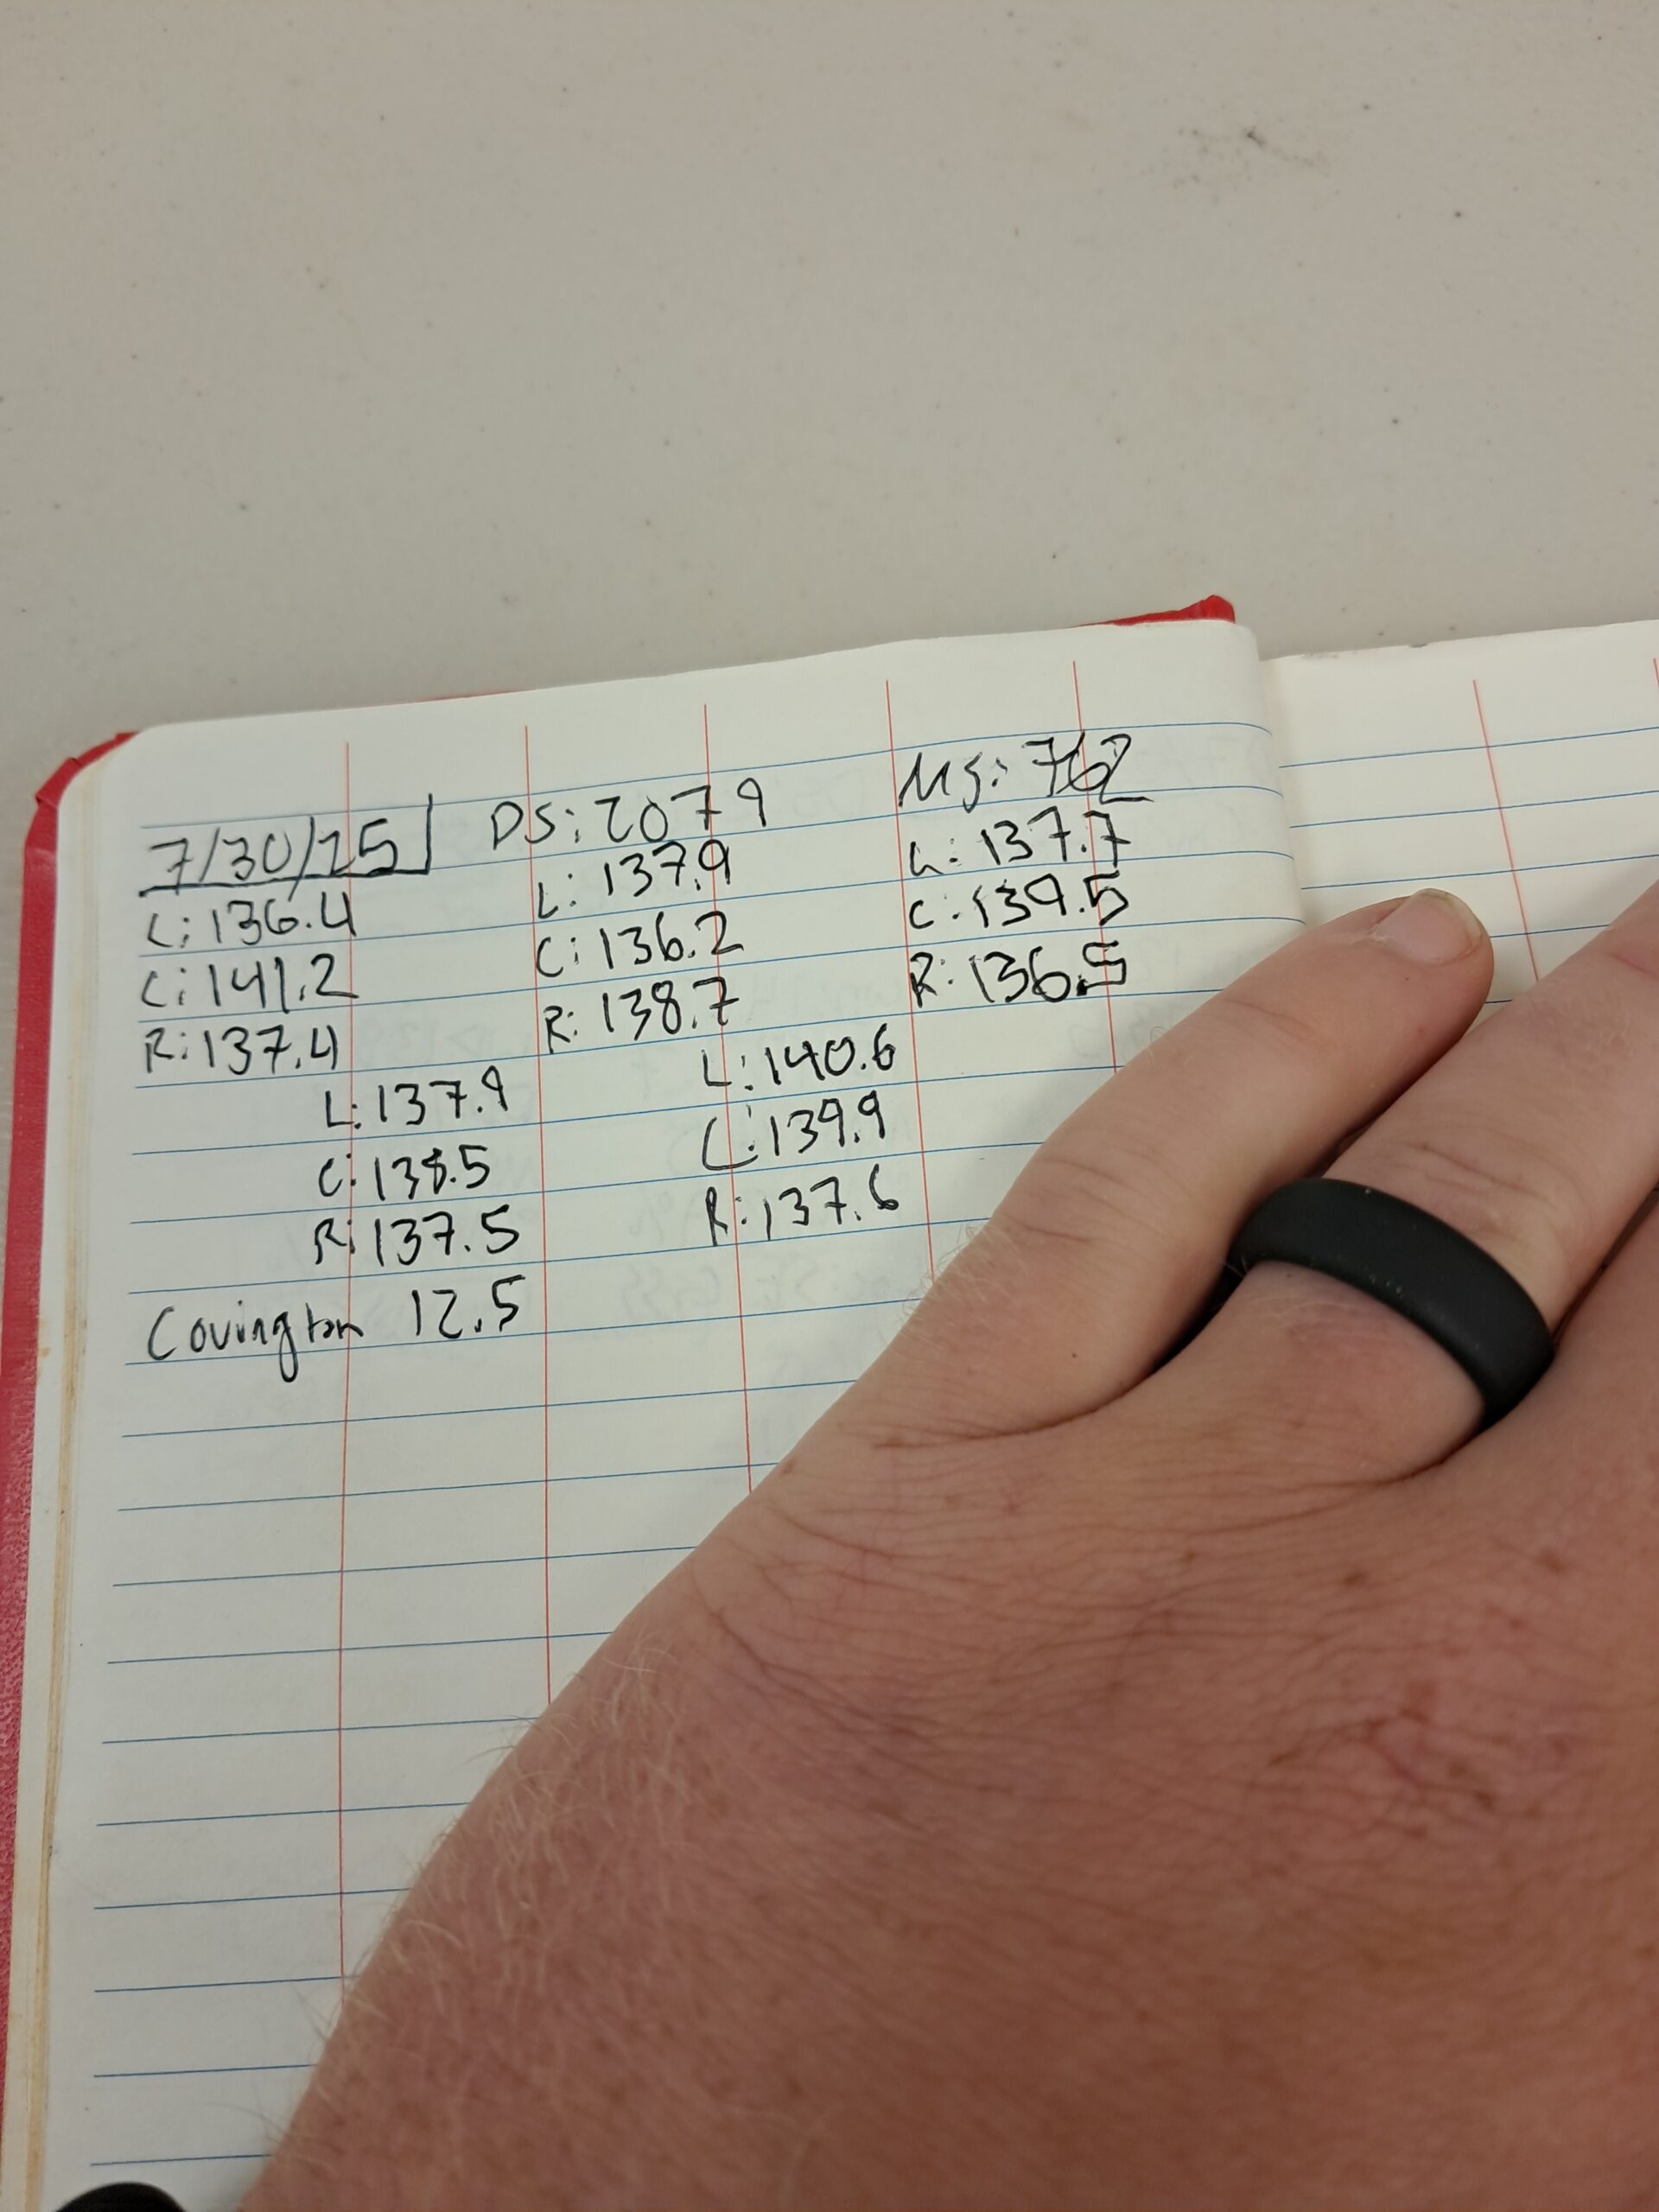 7/30/25 DS: 2079 MS: 762
L: 136.4 L: 137.9 L: 137.7
C: 141.2 C: 136.2 C: 139.5
R: 137.4 R: 138.7 R: 136.5
L: 137.9 L: 140.6
C: 138.5 C: 139.9
R: 137.5 R: 137.6
Covington 12.5